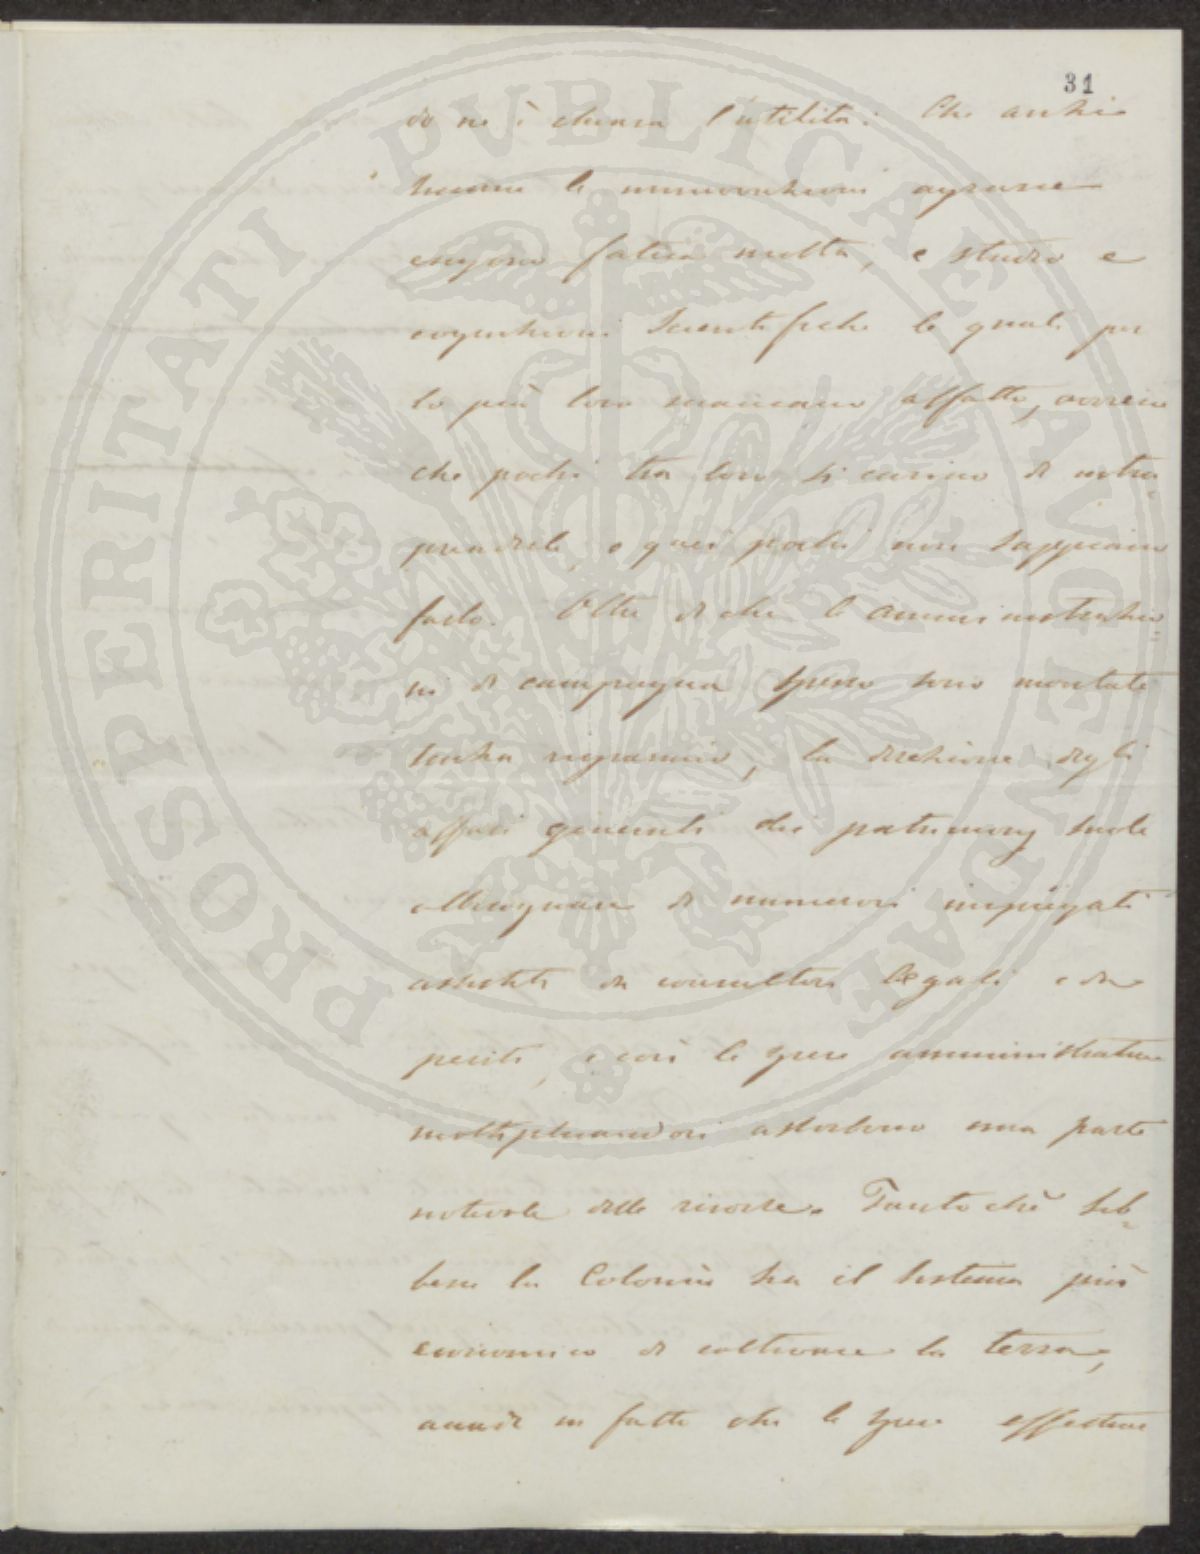 31
do ne è chiara l'utilità: Che anzi
siccome le innovazioni agrarie
esigono fatica molta, e studio e
cognizioni Scientifiche le quali per
lo più loro mancano affatto, avviene
che pochi tra loro si curino di intra=
prenderle, o quei pochi non sappiano
farlo. Oltre di che le amministrazio=
ni di campagna spesso sono montate
senza risparmio, la direzione degli
affari generali dei patrimonj suole
abbisognare di numerosi impiegati
assistiti da consultori legali e da
periti, e così le spese amministrative
moltiplicandosi assorbono una parte
notevole delle risorse. Tanto chè seb=
bene la Colonia sia il sistema più
economico di coltivare la terra,
accade in fatto che le spese effettive
PROSPERITATI PVBLICAE AVGENDAE